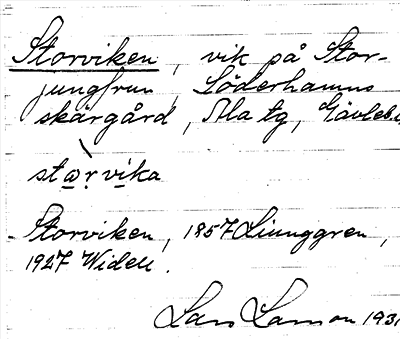 Storviken, vik på Stor-
jungfrun, Söderhamns
skärgård, Ala tg, Gävleb.
stạṛvịka
Storviken, 1857 Ljunggren,
1927 Widell.
Lars Larson 1931